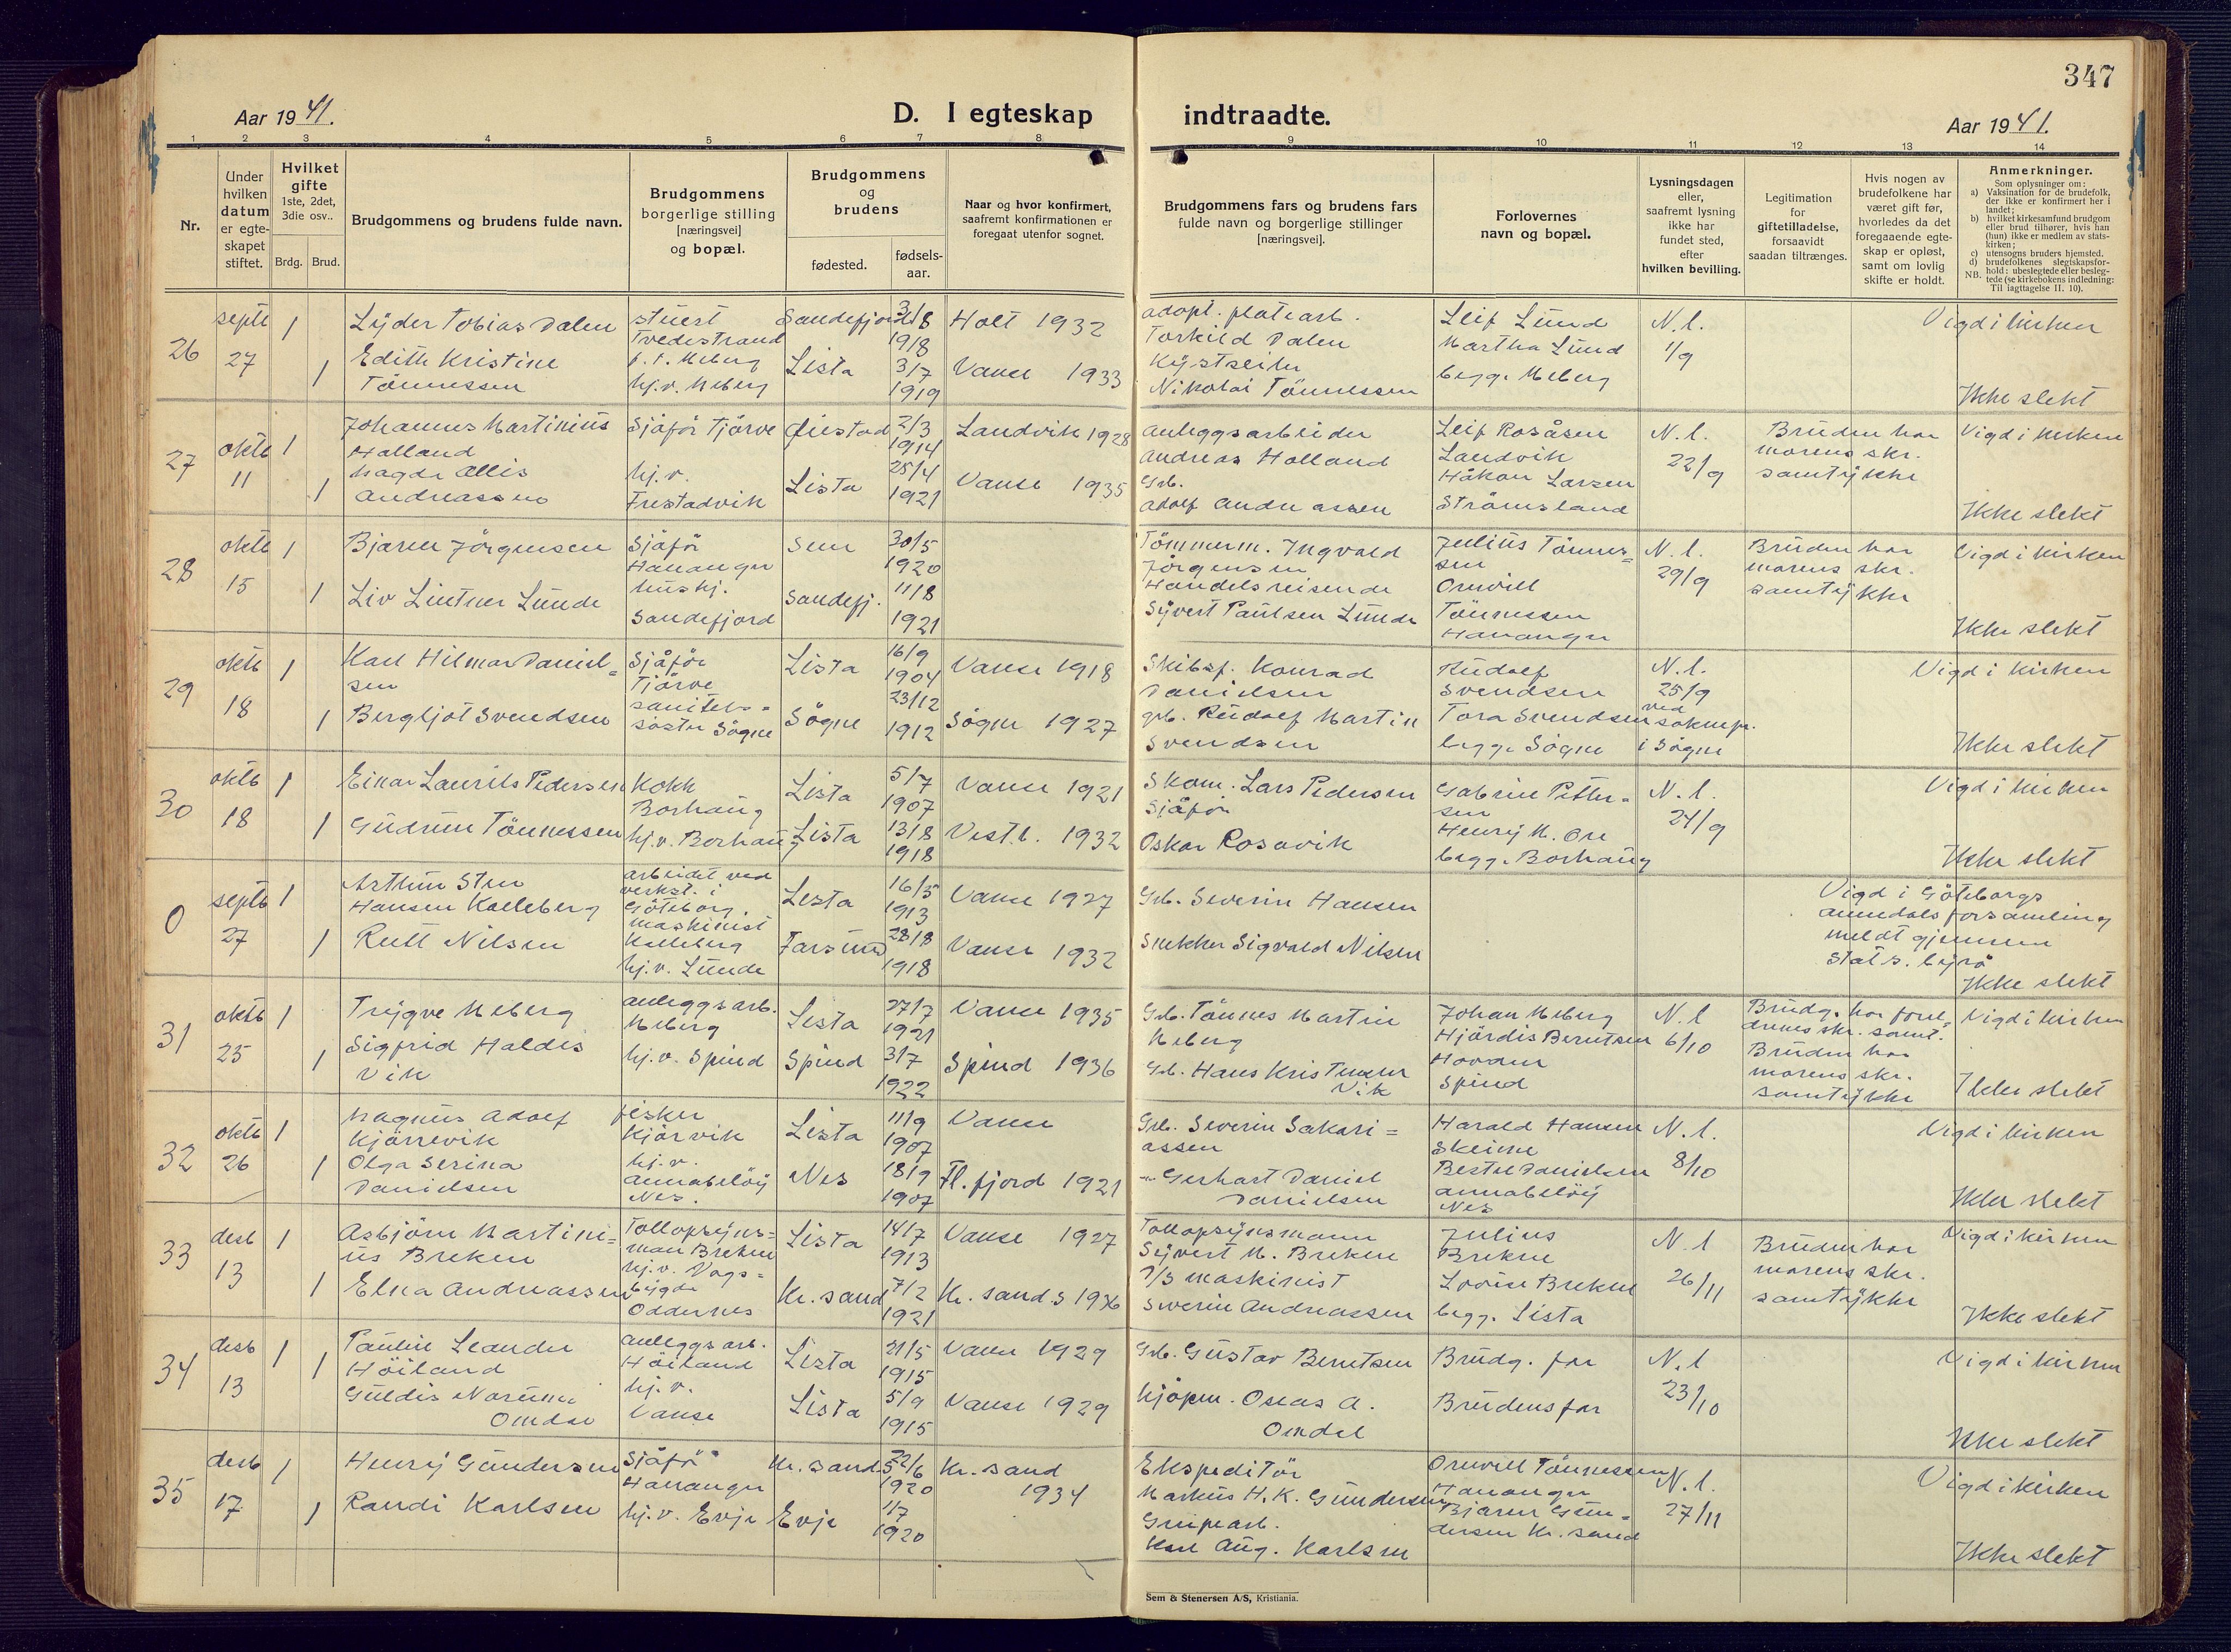 347
Aar 1941.
D. I egteskap indtraadte.
Aar 1941.
1 2 3 4 5 6 7 8 9 10 11 12 13 14
Nr.
Under
hvilken
datum
er egte-
skapet
stiftet.
Hvilket
gifte
1ste, 2det,
3die osv..
Brdg. Brud.
Brudgommens og brudens fulde navn.
Brudgommens
borgerlige stilling
[næringsvei]
og bopæl.
Brudgommens
og
brudens
fødested.
fødsels-
aar.
Naar og hvor konfirmert,
saafremt konfirmationen er
foregaat utenfor sognet.
Brudgommens fars og brudens fars
fulde navn og borgerlige stillinger
[næringsvei].
Forlovernes
navn og bopæl.
Lysningsdagen
eller,
saafremt lysning
ikke har
fundet sted,
efter
hvilken bevilling.
Legitimation
for
giftetilladelse,
forsaavidt
saadan tiltrænges.
Hvis nogen av
brudefolkene har
været gift før,
hvorledes da det
foregaaende egte-
skap er opløst,
samt om lovlig
skifte er holdt.
Anmerkninger.
Som oplysninger om:
a) Vaksination for de brudefolk,
der ikke er konfirmert her i
landet;
b) hvilket kirkesamfund brudgom
eller brud tilhører, hvis han
(hun) ikke er medlem av stats-
kirken;
c) utensogns bruders hjemsted.
d) brudefolkenes slegtskapsfor-
hold: ubeslegtede eller besleg-
NB. tede (se kirkebokens indledning:
Til iagttagelse II. 10).
26
septb
27
1
1
Lyder Tobias Dalen
Edith Kristine
Tönnessen
stuert
Tvedestrand
p.t. Meberg
hj.v. Meberg
Sandefjord
Lista
1918
3/7
1919
Holt 1932
Vanse 1933
adopt. platearb.
Torkild Dalen
Kystseiler
Nikolai Tönnessen
Leif Lund
Martha Lund
begge Meberg
N.l.
1/9
Vigd i kirken
Ikke slekt
27
oktb
11
1
1
Johannes Martinius
Holland
Magda Allis
Andreassen
Sjåför Tjörve
hj.v.
Frestadvik
Øiestad
Lista
2/3
1914
25/4
1921
Landvik 1928
Vanse 1935
Anleggsarbeider
Andreas Holland
Grb.
Adolf Andreassen
Leif Rosåsen
Landvik
Håkon Larsen
Strömsland
N.l.
22/9
Bruden har
morens skr.
samtykke
Vigd i kirken
Ikke slekt
28
oktb
15
1
1
Bjarne Jörgensen
Liv Lintner Lunde
Sjåför
Hanangr
hushj.
Sandefjord
Sem
Sandefj.
30/5
1920
11/8
1921
Tömmerm. Ingvald
Jörgensen
Handelsreisende
Syvert Paulsen Lunde
Julius Tönnes=
sen
Orwill
Tönnessen
Hanangr
N.l.
29/9
Bruden har
morens skr.
samtykke
Vigd i kirken
Ikke slekt
29
oktb
18
1
1
Karl Hilmar Daniel=
sen
Bergljot Svendsen
Sjåför
Tjörve
sanitets=
söster Sögne
Lista
Sögne
16/9
1904
23/12
1912
Vanse 1918
Sögne 1927
Skibsf. Konrad
Danielsen
grb. Rudolf Martin
Svendsen
Rudolf
Svendsen
Tora Svendsen
begge Sögne
N.l.
25/9
ved
soknepr.
i Sögne
Vigd i kirken
Ikke slekt
30
oktb
18
1
1
Einar Laurits Pedersen
Gudrun Tönnessen
Kokk
Borhaug
hj.v. Borhaug
Lista
Lista
5/7
1907
13/8
1918
Vanse 1921
Vest.l. 1932
Skom. Lars Pedersen
Sjåför
Oskar Rosavik
Gabriel Petter=
sen
Henry M. Ore
begge Borhaug
N.l.
24/9
Vigd i kirken
Ikke slekt
0
septb
27
1
1
Arthur Sten
Hansen Kalleberg
Rutt Nilsen
arbeidet ved
verkst. i
Göteborg.
maskinist
Kalleberg
hj.v. Lunde
Lista
Farsund
16/5
1913
28/8
1918
Vanse 1927
Vanse 1932
Grb. Severin Hansen
Snekker Sigvald Nilsen
Vigd i Göteborgs
annedals forsamling
meldt gjennem
Stat.s. byrå
Ikke slekt
31
oktb
25
1
1
Trygve Meberg
Sigfrid Haldis
Vik
anleggsarb.
Meberg
hj.v. Spind
Lista
Spind
27/7
1921
3/7
1922
Vanse 1935
Spind 1936
Grb. Tönnes Martin
Meberg
Grb. Hans Kristensen
Vik
Johan Meberg
Hjördis Berntsen
Hovden
Spind
N.l
6/10
Brudg. har forel=
drenes skr. samt.
Bruden har
morens skr.
samtykke
Vigd i kirken
Ikke slekt
32
oktb
26
1
1
Magnus Adolf
Kjörrevik
Olga Serina
Danielsen
fisker
Kjörvik
hj.v.
Annabelöy
Nes.
Lista
Nes
11/9
1907
18/9
1907
Vanse
Fl.fjord 1921
Grb. Severin Sakari=
assen
Gerhart Daniel
Danielsen
Harald Hansen
Skeime
Bestel Danielsen
Annabelöy
Nes
N.l.
8/10
Vigd i kirken
Ikke slekt
33
desb
13
1
1
Asbjörn Martini=
us Brekne
Elna Andreassen
Tollopsyns=
man Brekne
hj.v. Vågs=
bygda
Oddernes
Lista
Kr.sand
14/7
1913
7/2
1921
Vanse 1927
Kr.sand.s 1936
Tollopsynsmann
Syvert M. Brekne
D/S maskinist
Severin Andreassen
Julius
Brekne
Lovise Brekne
begge Lista
N.l
26/11
Bruden har
morens skr.
samtykke
Vigd i kirken
Ikke slekt
34
desb
13
1
1
Paulin Leander
Höiland
Guldis Norunn
Omdal
anleggsarb.
Höiland
hj.v.
Vanse
Lista
Lista
21/5
1915
5/9
1915
Vanse 1929
Vanse 1929
Grb. Gustav Berntsen
kjöpm. Oseas A.
Omdal
Brudg. far
Brudens far
N.l
23/10
Vigd i kirken
Ikke slekt
35
desb
17
1
1
Henry Gundersen
Randi Karlsen
Sjåför
Hanangr
hj.v. Evje
Kr.sand.s
Evje
22/6
1920
1/7
1920
Kr.sand
1934
Ekspeditör
Markus H.K. Gundersen
Gruvearb.
Karl Aug. Karlsen
Orwill Tönnessen
Hanangr
Bjarne Gun=
dersen Kr.sand
N.l.
27/11
Vigd i kirken
Ikke slekt
Sem & Stenersen A/S, Kristiania.